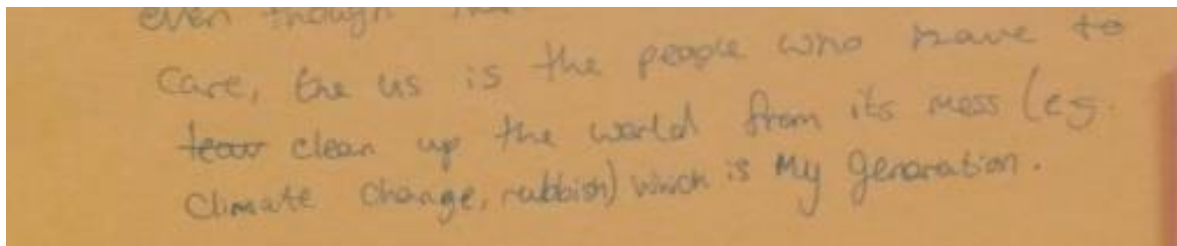 even though
care, the us is the people who have to
clean up the world from its mess (eg.
climate change, rubbish) which is my generation.